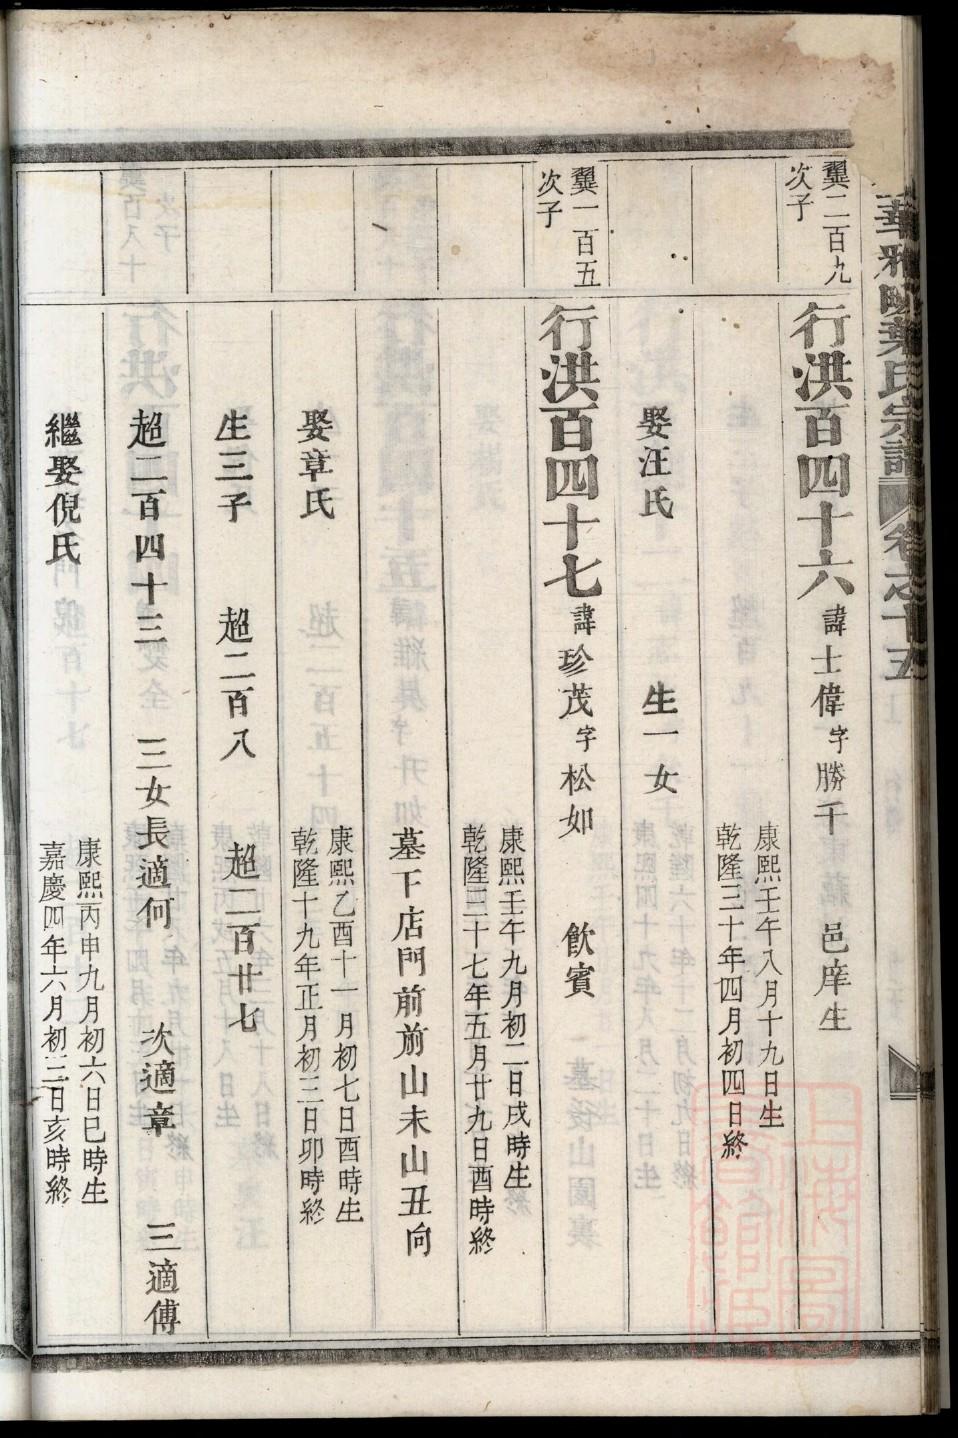 華雅畈葉氏宗譜 卷之十五
翼二百九
次子
行洪百四十六 諱士偉字勝千 邑庠生
康熙壬午八月十九日生
乾隆三十年四月初四日終
娶汪氏 生一女
翼一百五
次子
行洪百四十七 諱珍茂字松如 飲賓
康熙壬午九月初二日戌時生
乾隆四十七年五月廿九日酉時終
墓下店門前前山未山丑向
娶章氏
康熙乙酉十一月初七日酉時生
乾隆十九年正月初三日卯時終
生三子 超二百八 超二百廿七
超二百四十三 三女長適何 次適章 三適傅
繼娶倪氏
康熙丙申九月初六日巳時生
嘉慶四年六月初三日亥時終